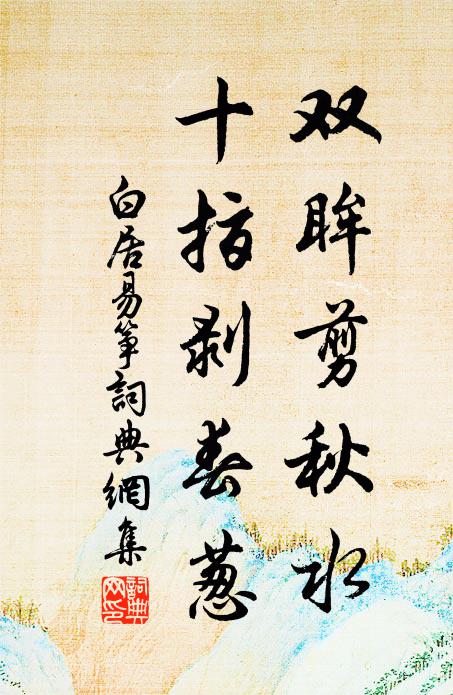 双眸剪秋水
十指剥春葱
白居易筝詞典網集
詞典